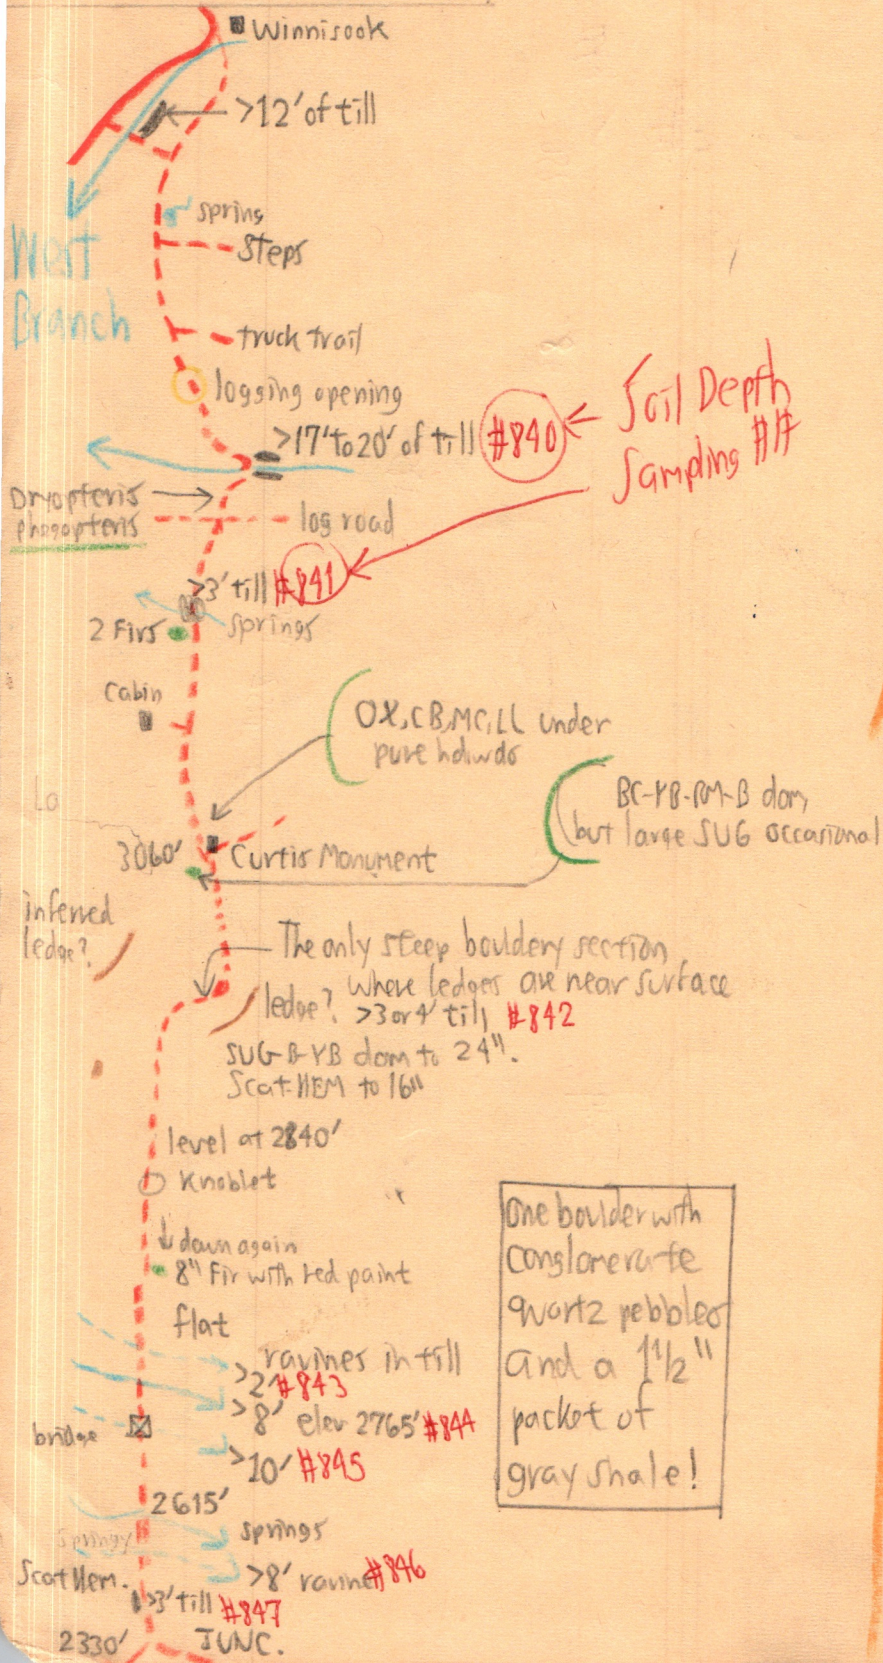 Winnisook
>12' of till
spring
Steps
West
Branch
truck trail
logging opening
>17' to 20' of till #840
Soil Depth
Sampling ##
Dryopteris
phegopteris
log road
>3' till #841
springs
2 Firs
Cabin
OX, CB, MC, LL under
pure hdwds
BC-YB-RM-B dom,
but large SUG occasional
Lo
3060'
Curtis Monument
inferred
ledge?
The only steep bouldery section
where ledges are near surface
ledge? >3 or 4' till #842
SUG-B-YB dom to 24".
Scat. HEM to 16"
level at 2840'
Knoblet
down again
8" Fir with red paint
flat
ravines in till
>2' #843
>8' elev 2765' #844
bridge
>10' #845
2615'
springy
springs
Scat Hem.
>8' ravine #846
>3' till #847
2330' JUNC.
one boulder with
conglomerate
quartz pebbles
and a 1 1/2"
packet of
gray shale!